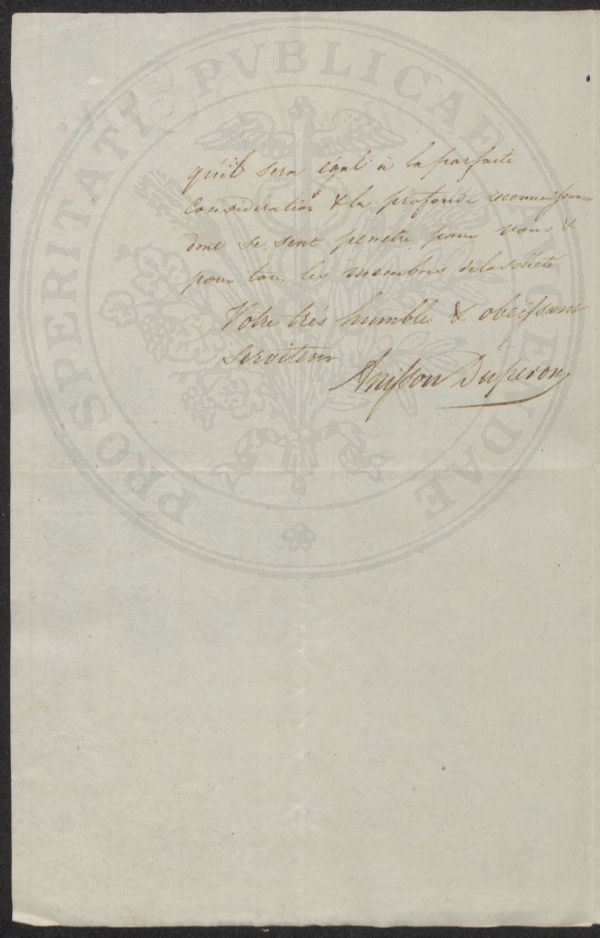 PROSPERITATI PVBLICAE AVGENDAE
qu'il sera égal à la parfaite
Consideration & la profonde reconnoissance
dont se sent penetré pour vous &
pour tous les membres de la Société
Votre très humble & obéissant
Serviteur
Anisson Duperon